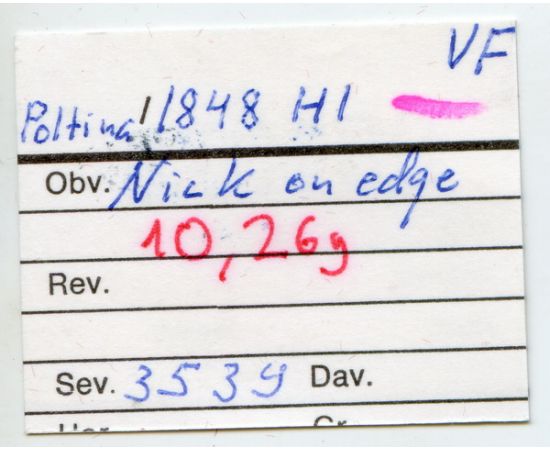 VF
Poltina 1848 HI
Obv. Nick on edge
10,26g
Rev.
Sev. 3539 Dav.